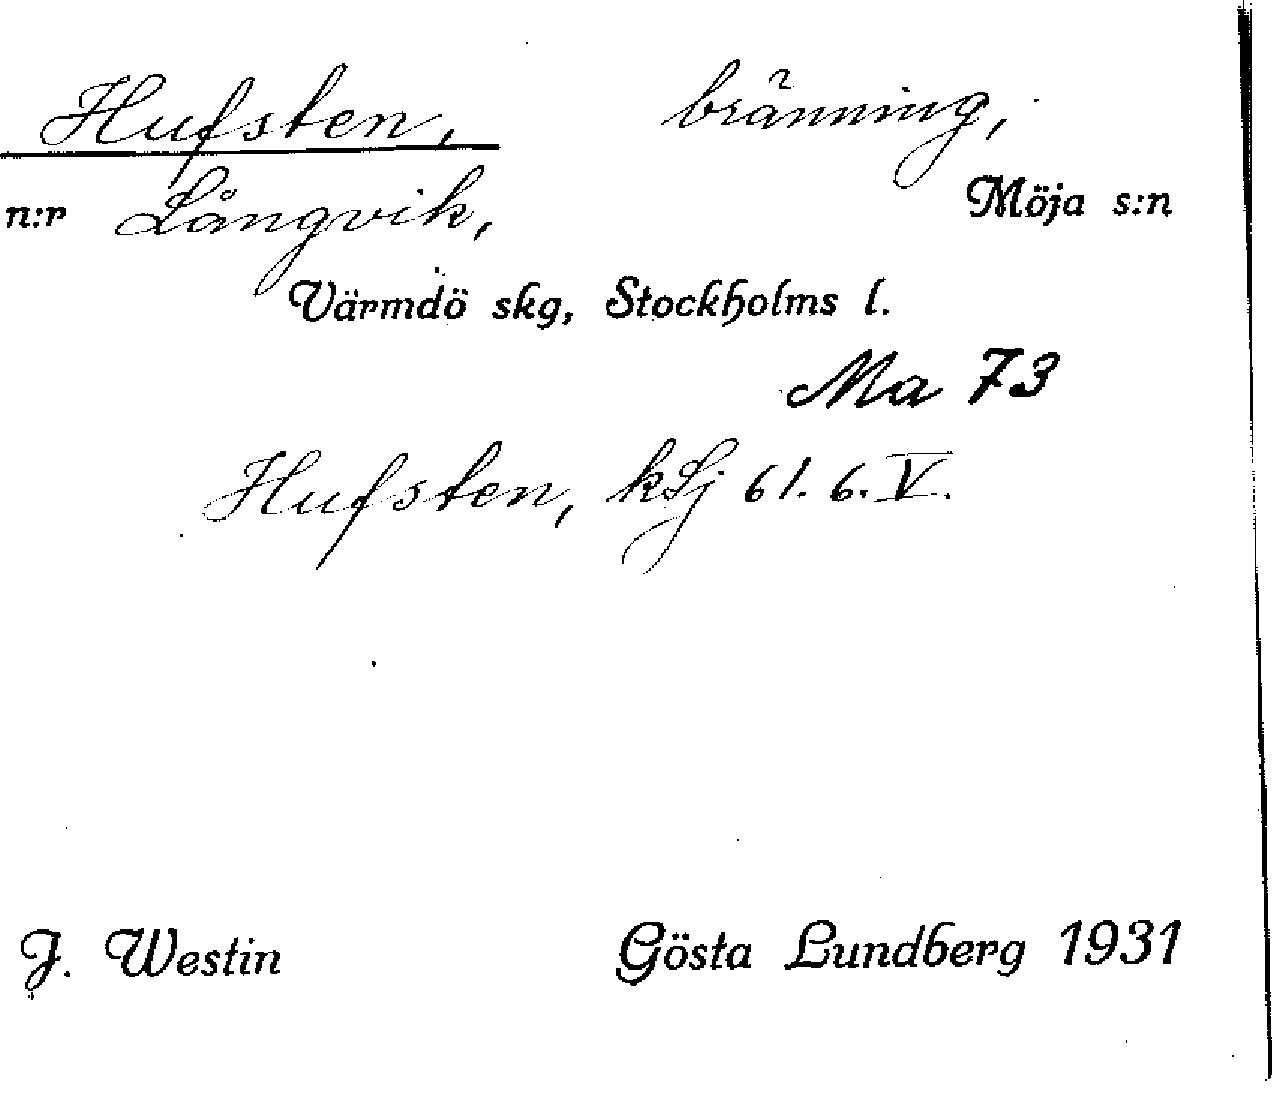 Hufsten, bränning,
n:r Långvik, Möja s:n
Värmdö skg, Stockholms l.
Ma 73
Hufsten, kSj 61. 6. V.
J. Westin Gösta Lundberg 1931